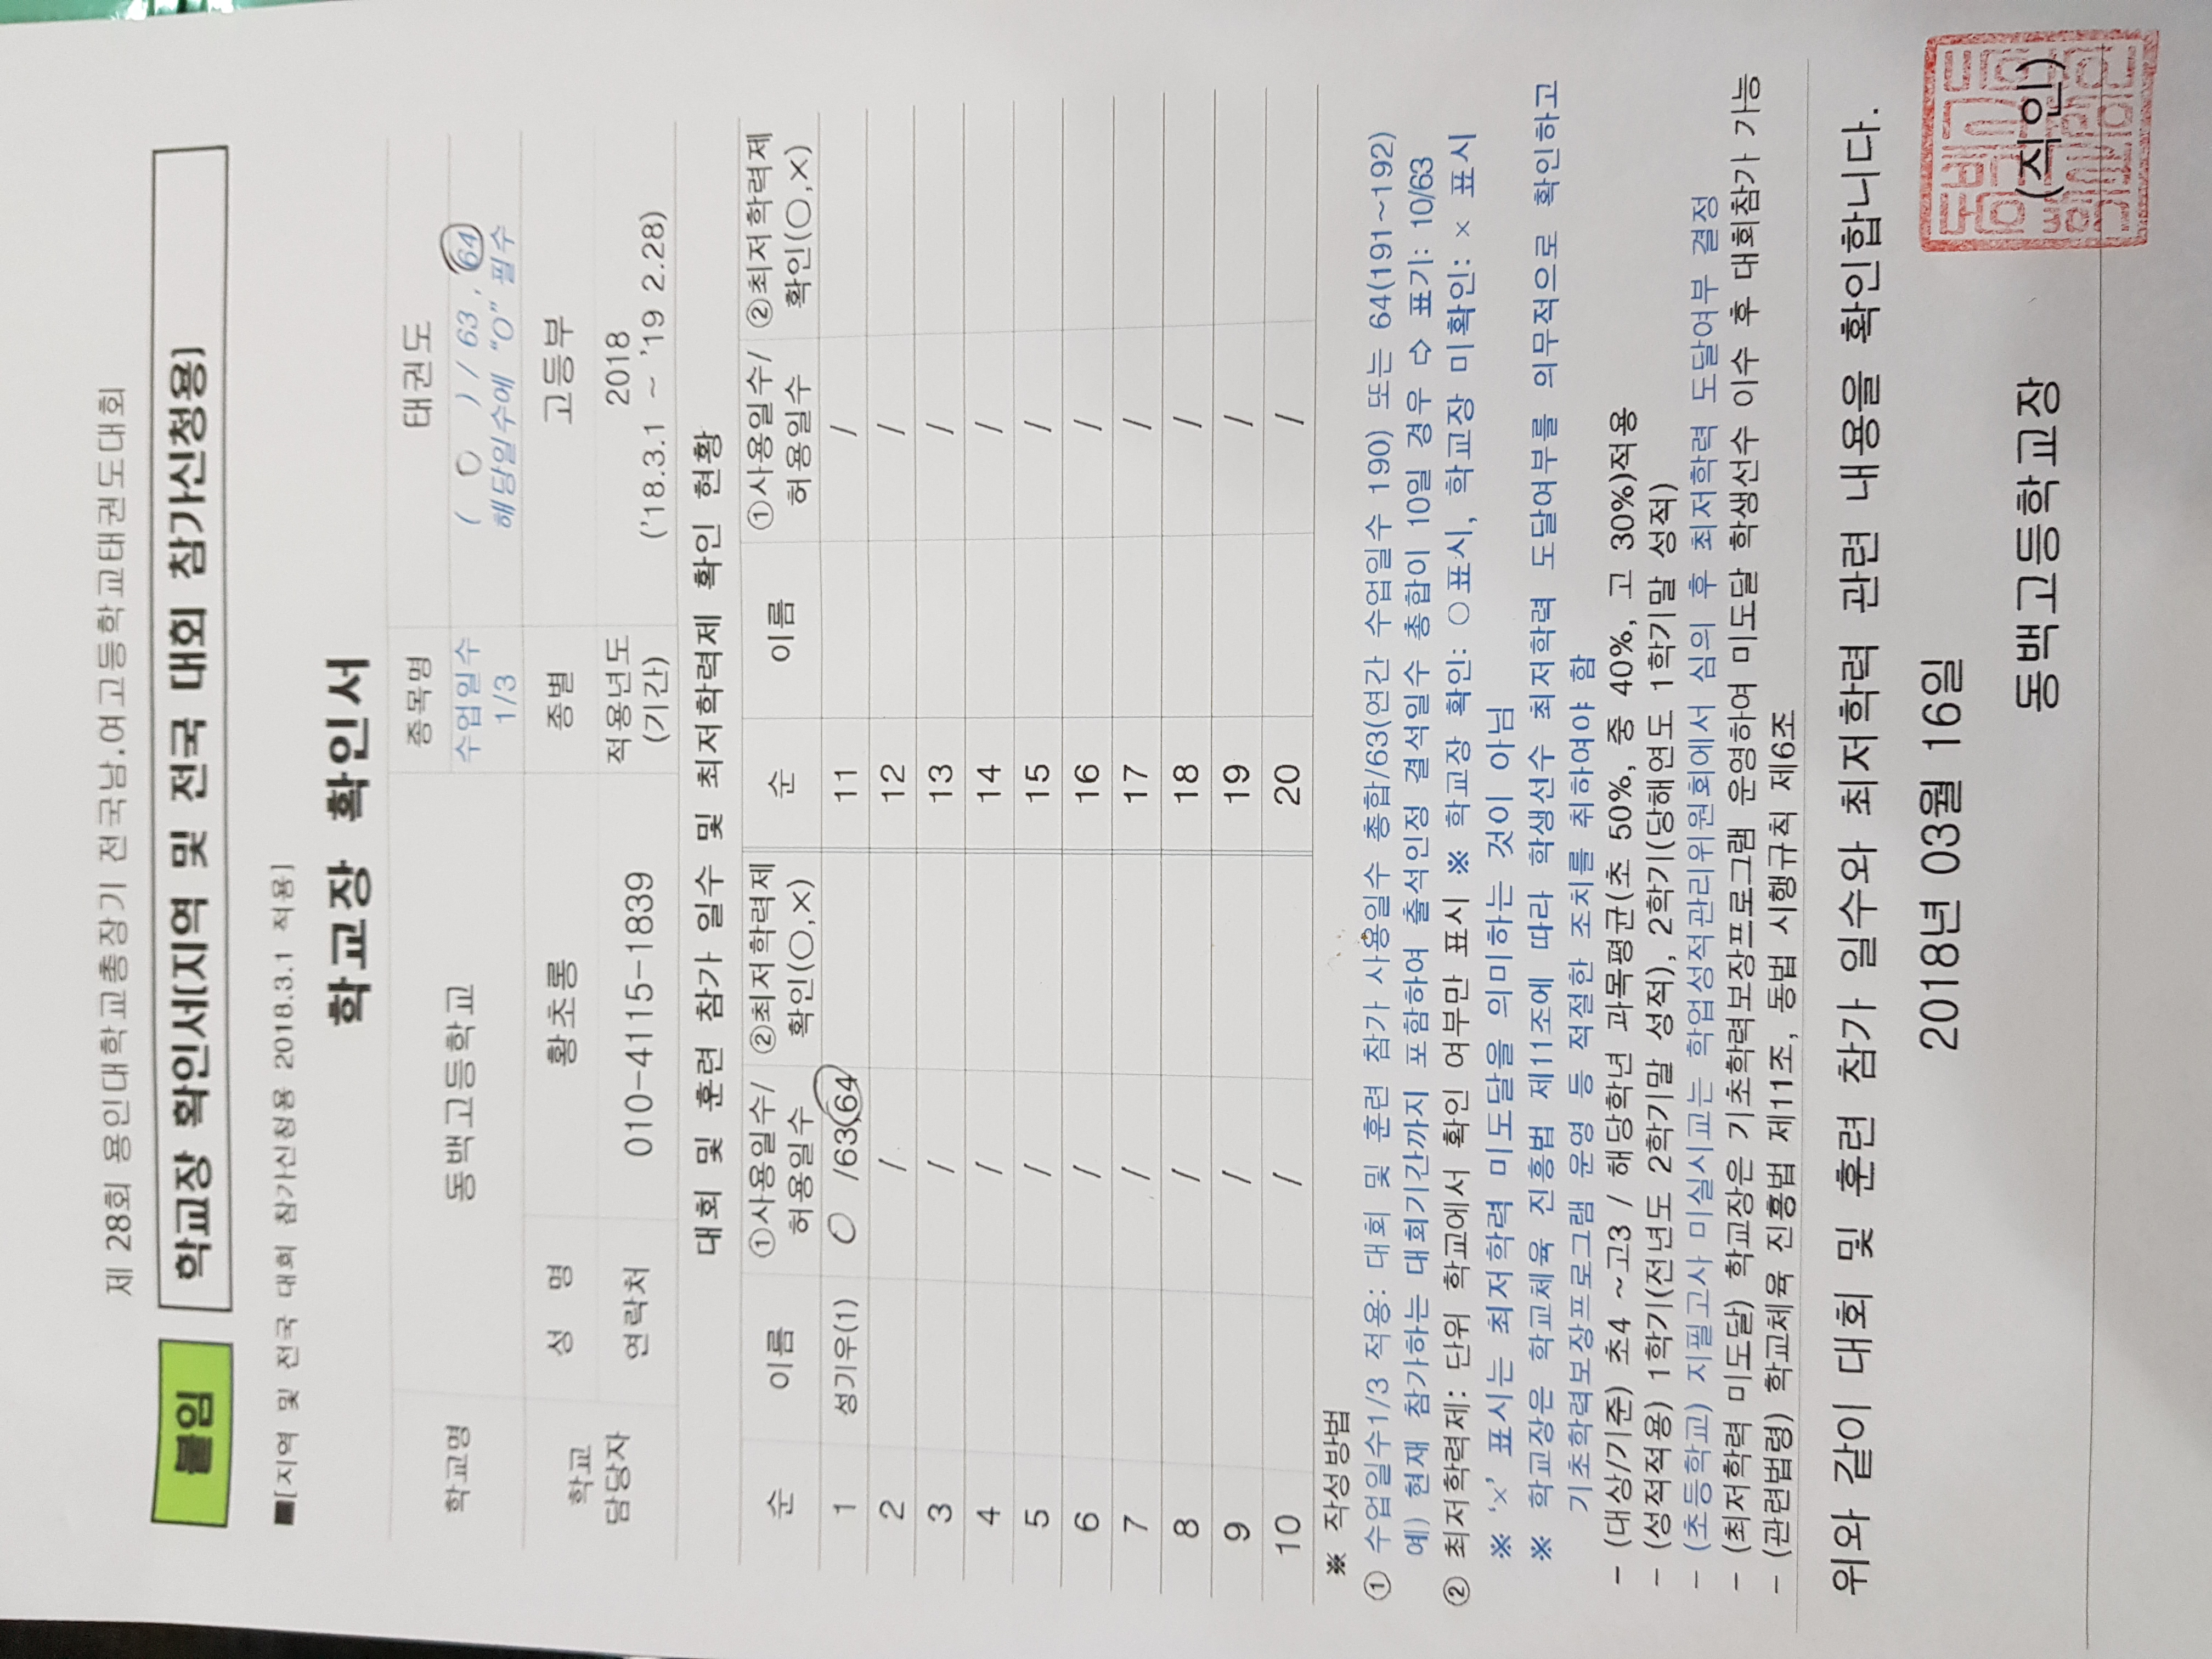 제 28회 용인대학교총장기 전국남.여고등학교태권도대회
붙임 학교장 확인서(지역 및 전국 대회 참가신청용)
■[지역 및 전국 대회 참가신청용 2018.3.1 적용]
학교장 확인서
학교명 동백고등학교 종목명 태권도
수업일수 1/3 ( 0 ) / 63 , 64
해당일수에 "O" 필수
학교 담당자 성 명 황초롱 종별 고등부
연락처 010-4115-1839 적용년도 (기간) 2018
('18.3.1 ~ '19 2.28)
대회 및 훈련 참가 일수 및 최저학력제 확인 현황
순 이름 ①사용일수/허용일수 ②최저학력제 확인(○,×) 순 이름 ①사용일수/허용일수 ②최저학력제 확인(○,×)
1 성기우(1) 0 /63,64 11 /
2 / 12 /
3 / 13 /
4 / 14 /
5 / 15 /
6 / 16 /
7 / 17 /
8 / 18 /
9 / 19 /
10 / 20 /
※ 작성방법
① 수업일수1/3 적용: 대회 및 훈련 참가 사용일수 총합/63(연간 수업일수 190) 또는 64(191~192)
예) 현재 참가하는 대회기간까지 포함하여 출석인정 결석일수 총합이 10일 경우 ⇨ 표기: 10/63
② 최저학력제: 단위 학교에서 확인 여부만 표시 ※ 학교장 확인: ○표시, 학교장 미확인: × 표시
※ '×' 표시는 최저학력 미도달을 의미하는 것이 아님
※ 학교장은 학교체육 진흥법 제11조에 따라 학생선수 최저학력 도달여부를 의무적으로 확인하고
기초학력보장프로그램 운영 등 적절한 조치를 취하여야 함
- (대상/기준) 초4 ~고3 / 해당학년 과목평균(초 50%, 중 40%, 고 30%)적용
- (성적적용) 1학기(전년도 2학기말 성적), 2학기(당해연도 1학기말 성적)
- (초등학교) 지필고사 미실시교는 학업성적관리위원회에서 심의 후 최저학력 도달여부 결정
- (최저학력 미도달) 학교장은 기초학력보장프로그램 운영하여 미도달 학생선수 이수 후 대회참가 가능
- (관련법령) 학교체육 진흥법 제11조, 동법 시행규칙 제6조
위와 같이 대회 및 훈련 참가 일수와 최저학력 관련 내용을 확인합니다.
2018년 03월 16일
동백고등학교장 (직인)